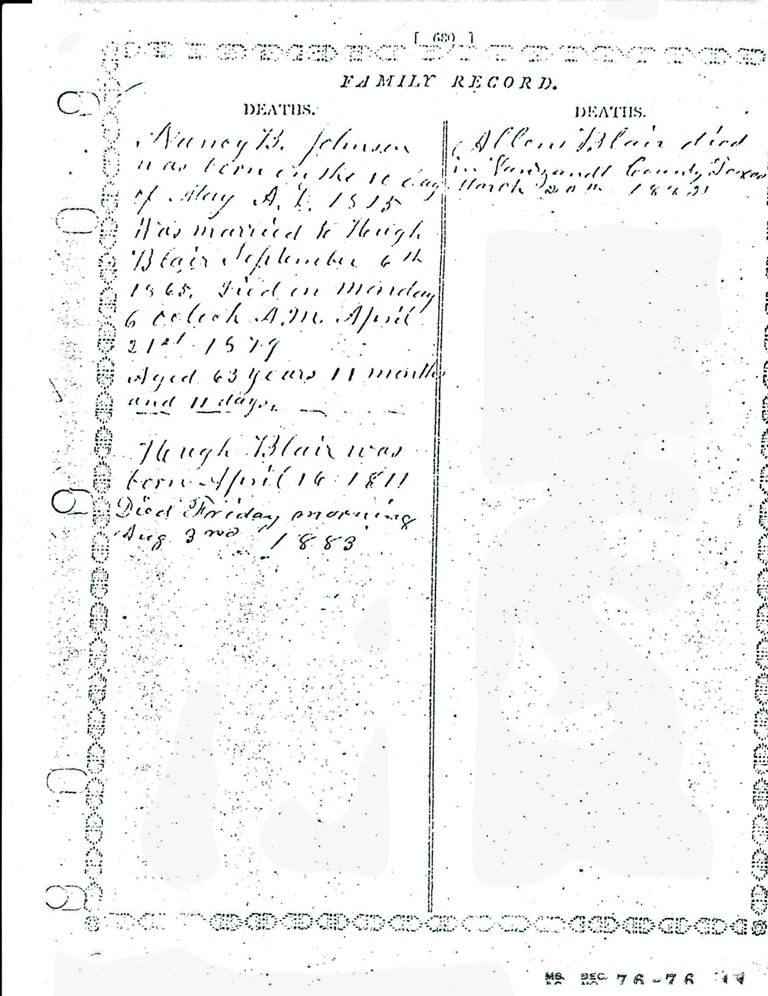 [ 680 ]
FAMILY RECORD.
DEATHS.
Nancy B. Johnson
was born on the 10 day
of May A. D. 1815
Was married to Hugh
Blair September 6th
1865. Died on Monday
6 oclock A.M. April
21st 1879
Aged 63 years 11 months
and 11 days.
Hugh Blair was
born April 16 1811
Died Friday morning
Aug 3rd 1883
DEATHS.
Allen Blair died
in Vanzandt County Texas
March 20th
76-76